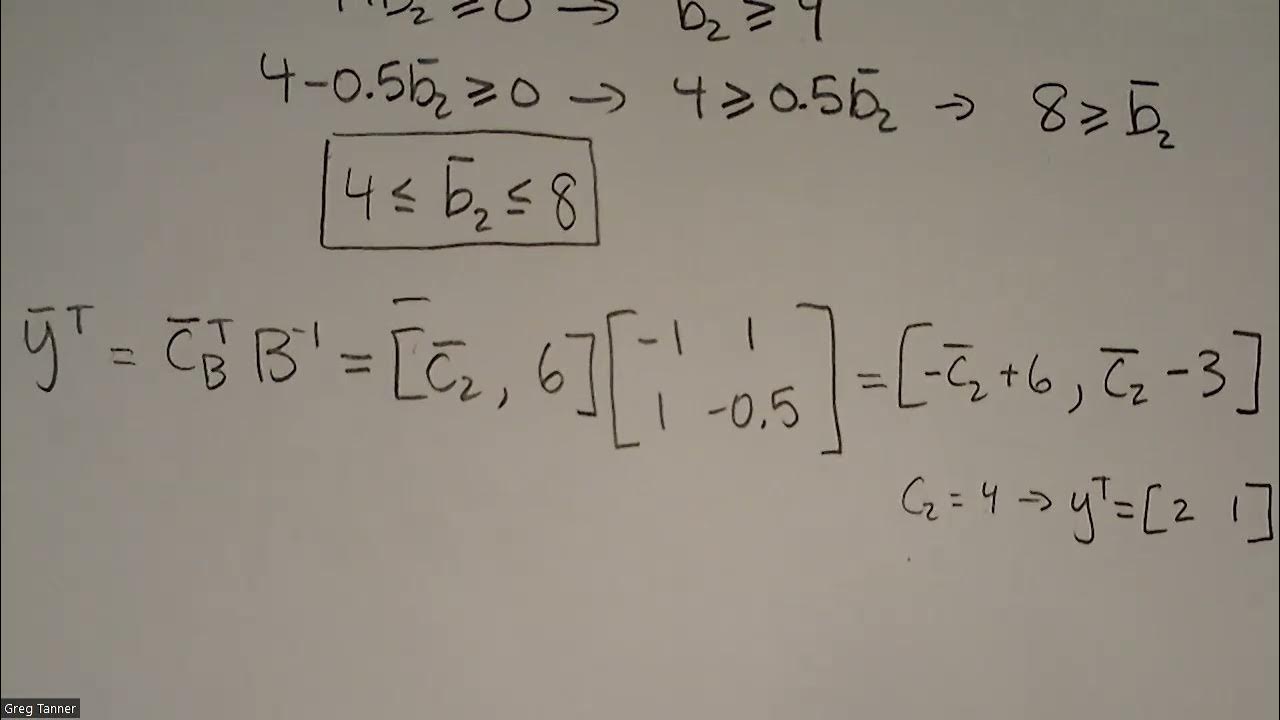 b₂ ≥ 0 → b₂ ≥ 4
4-0.5b̄₂ ≥ 0 → 4 ≥ 0.5b̄₂ → 8 ≥ b̄₂
4 ≤ b̄₂ ≤ 8
ȳᵀ = c̄_Bᵀ B⁻¹ = [c̄₂, 6] [-1 1; 1 -0.5] = [-c̄₂+6, c̄₂-3]
c₂ = 4 → yᵀ = [2 1]
Greg Tanner